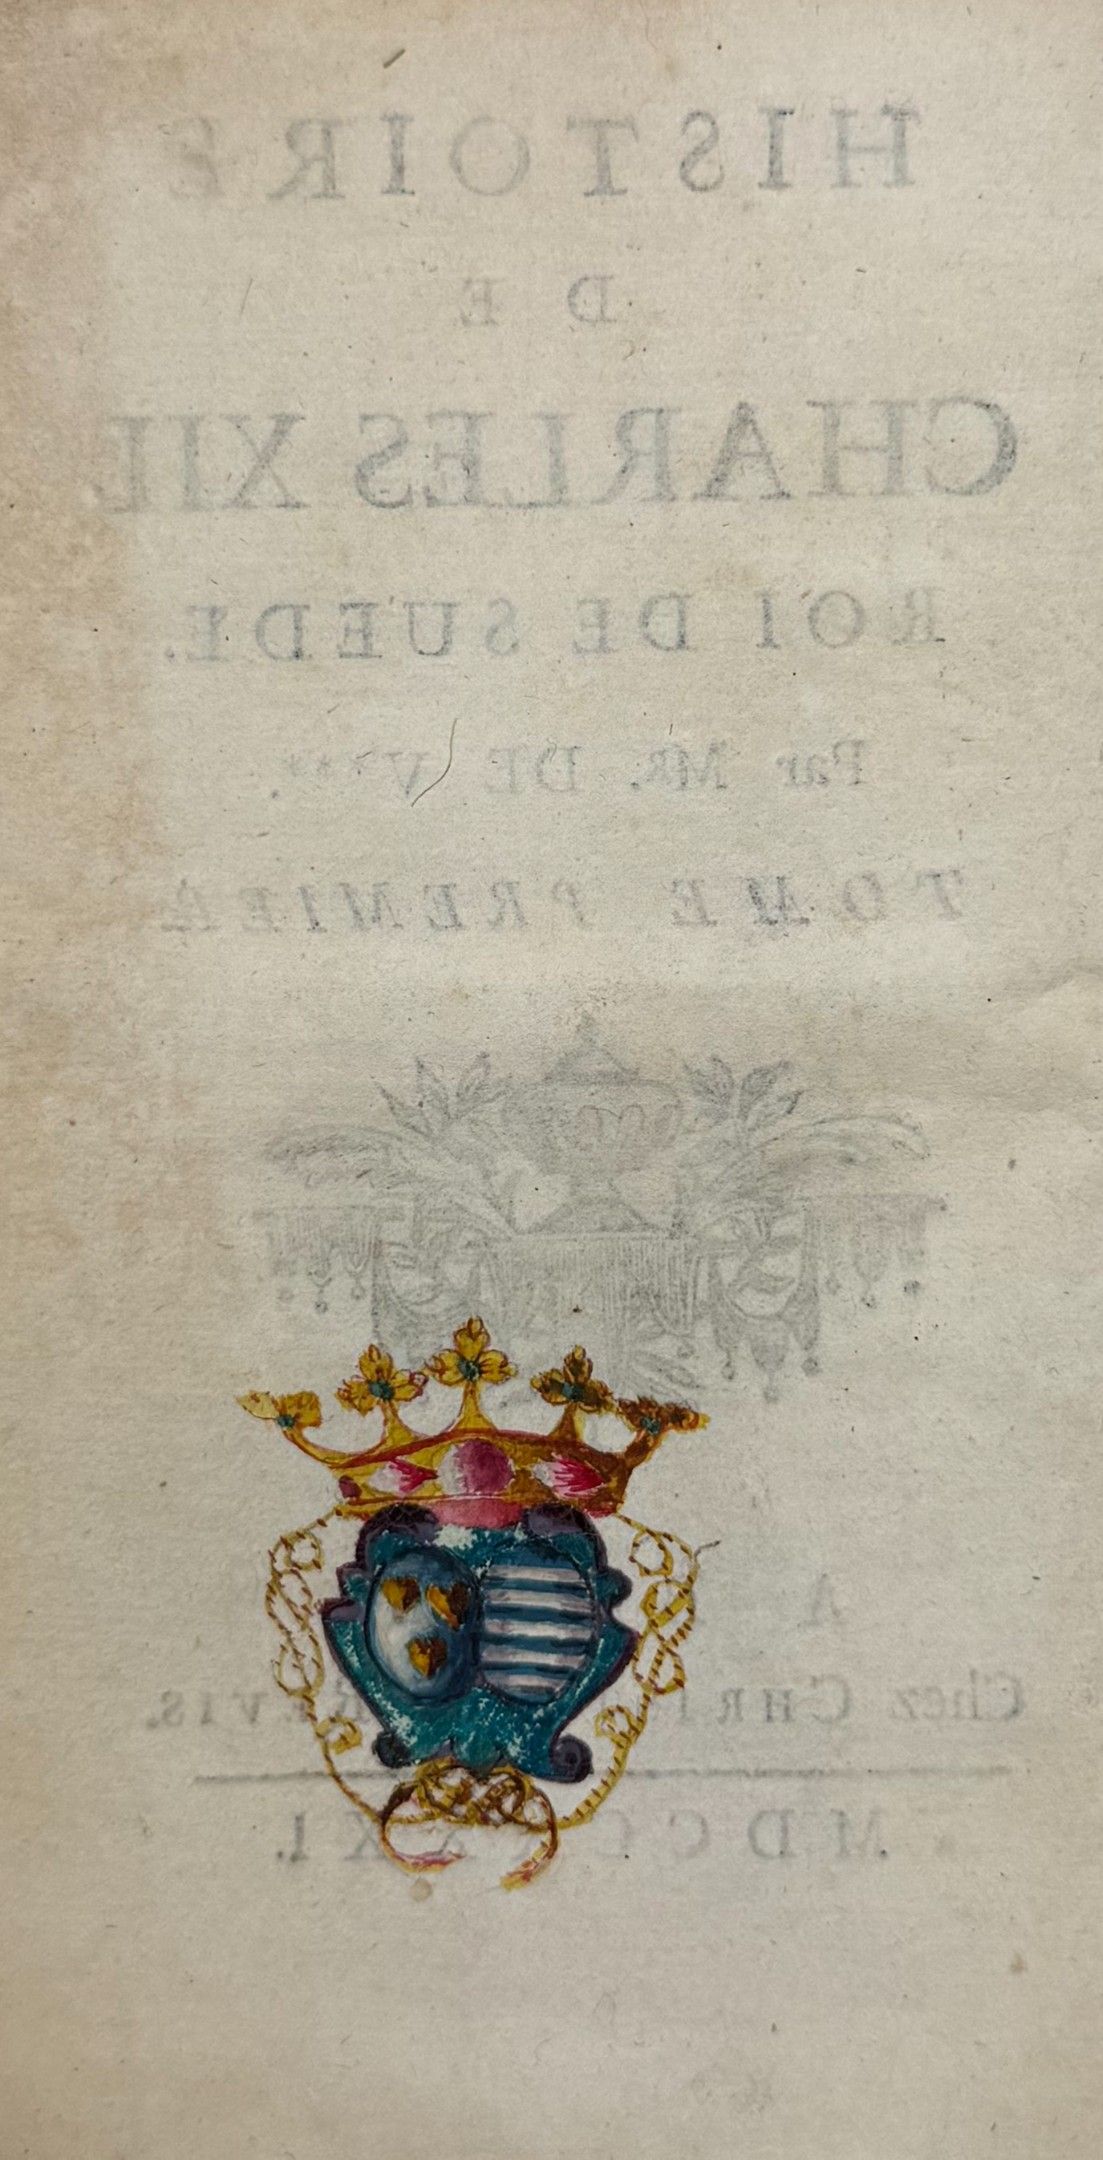 HISTOIRE
DE
CHARLES XII.
ROI DE SUEDE.
Par MR. DE V***.
TOME PREMIER
A
Chez